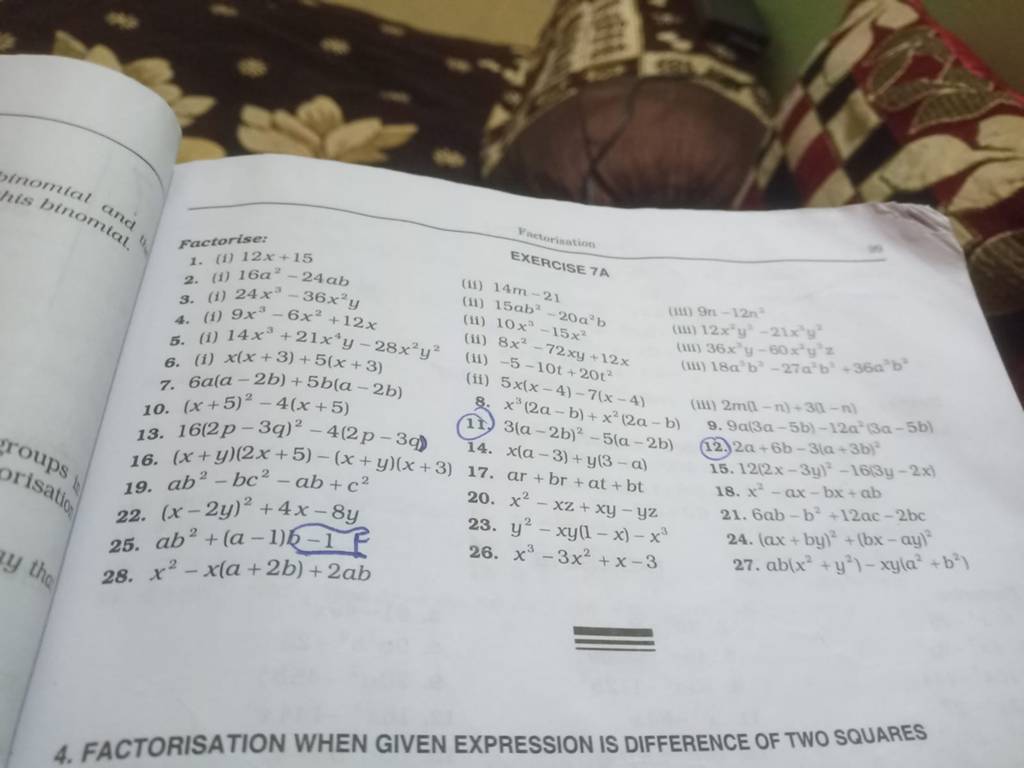 binomial and
his binomial.
Factorisation
99
EXERCISE 7A
Factorise:
1. (i) 12x + 15 (ii) 14m – 21 (iii) 9n – 12n²
2. (i) 16a² – 24ab (ii) 15ab² – 20a²b (iii) 12x²y³ – 21x³y²
3. (i) 24x³ – 36x²y (ii) 10x³ – 15x² (iii) 36x³y – 60x²y³z
4. (i) 9x³ – 6x² + 12x (ii) 8x² – 72xy + 12x (iii) 18a³b³ – 27a²b³ + 36a³b²
5. (i) 14x³ + 21x⁴y – 28x²y² (ii) –5 – 10t + 20t²
6. (i) x(x + 3) + 5(x + 3) (ii) 5x(x – 4) – 7(x – 4) (iii) 2m(1 – n) + 3(1 – n)
7. 6a(a – 2b) + 5b(a – 2b) 8. x³(2a – b) + x²(2a – b) 9. 9a(3a – 5b) – 12a²(3a – 5b)
10. (x + 5)² – 4(x + 5) 11. 3(a – 2b)² – 5(a – 2b) 12. 2a + 6b – 3(a + 3b)²
13. 16(2p – 3q)² – 4(2p – 3q) 14. x(a – 3) + y(3 – a) 15. 12(2x – 3y)² – 16(3y – 2x)
16. (x + y)(2x + 5) – (x + y)(x + 3) 17. ar + br + at + bt 18. x² – ax – bx + ab
19. ab² – bc² – ab + c² 20. x² – xz + xy – yz 21. 6ab – b² + 12ac – 2bc
22. (x – 2y)² + 4x – 8y 23. y² – xy(1 – x) – x³ 24. (ax + by)² + (bx – ay)²
25. ab² + (a – 1)b – 1 26. x³ – 3x² + x – 3 27. ab(x² + y²) – xy(a² + b²)
28. x² – x(a + 2b) + 2ab
4. FACTORISATION WHEN GIVEN EXPRESSION IS DIFFERENCE OF TWO SQUARES